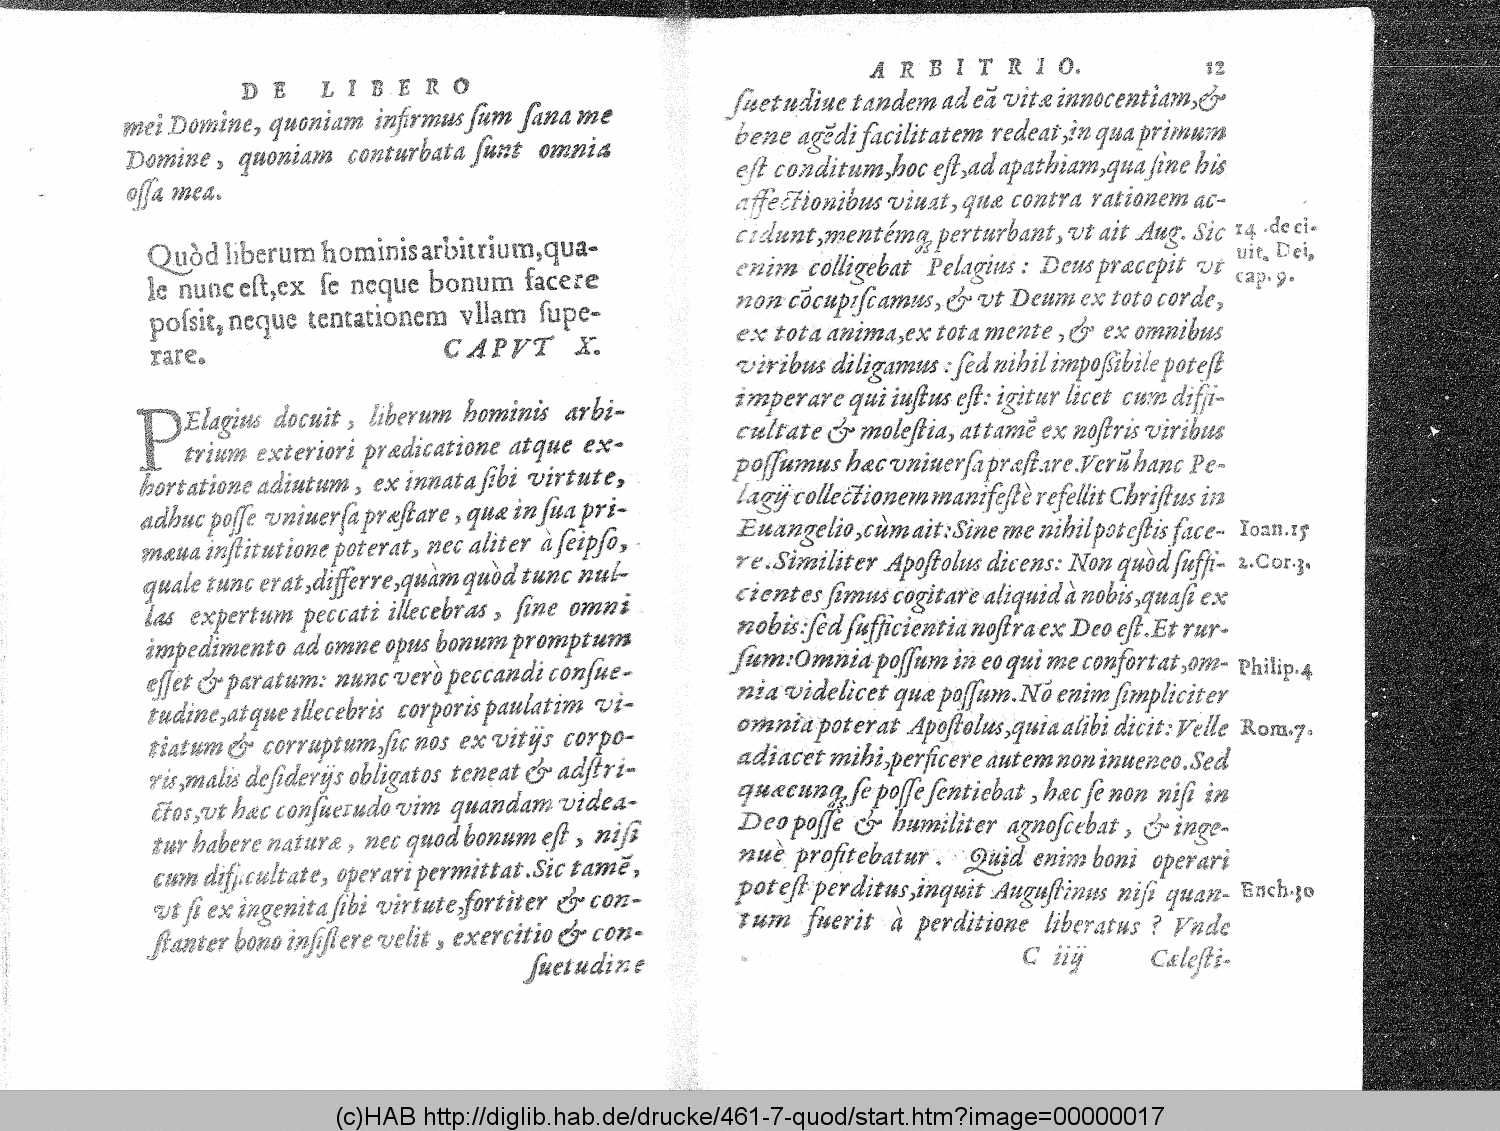 DE LIBERO
mei Domine, quoniam infirmus ſum ſana me
Domine, quoniam conturbata ſunt omnia
oſſa mea.
Quòd liberum hominis arbitrium, qua-
le nunc eſt, ex ſe neque bonum facere
poſsit, neque tentationem vllam ſupe-
rare.
CAPVT X.
PElagius docuit, liberum hominis arbi-
trium exteriori prædicatione atque ex-
hortatione adiutum, ex innata ſibi virtute,
adhuc poſſe vniuerſa præſtare, quæ in ſua pri-
mæua inſtitutione poterat, nec aliter à ſeipſo,
quale tunc erat, differre, quàm quòd tunc nul-
las expertum peccati illecebras, ſine omni
impedimento ad omne opus bonum promptum
eſſet & paratum: nunc verò peccandi conſue-
tudine, atque illecebris corporis paulatim vi-
tiatum & corruptum, ſic nos ex vitijs corpo-
ris, malis deſiderijs obligatos teneat & adſtri-
ctos, vt hæc conſuetudo vim quandam videa-
tur habere naturæ, nec quod bonum eſt, niſi
cum difficultate, operari permittat. Sic tamẽ,
vt ſi ex ingenita ſibi virtute, fortiter & con-
ſtanter bono inſiſtere velit, exercitio & con-
ſuetudine
ARBITRIO.
12
ſuetudiue tandem ad eã vitæ innocentiam, &
bene agẽdi facilitatem redeat, in qua primum
eſt conditum, hoc eſt, ad apathiam, qua ſine his
affectionibus viuat, quæ contra rationem ac-
cidunt, mentémq; perturbant, vt ait Aug. Sic
enim colligebat Pelagius: Deus præcepit vt
non cõcupiſcamus, & vt Deum ex toto corde,
ex tota anima, ex tota mente, & ex omnibus
viribus diligamus: ſed nihil impoſſibile poteſt
imperare qui iuſtus eſt: igitur licet cum diffi-
cultate & moleſtia, attamẽ ex noſtris viribus
poſſumus hæc vniuerſa præſtare. Verũ hanc Pe-
lagij collectionem manifeſtè refellit Chriſtus in
Euangelio, cùm ait: Sine me nihil poteſtis face-
re. Similiter Apoſtolus dicens: Non quòd ſuffi-
cientes ſimus cogitare aliquid à nobis, quaſi ex
nobis: ſed ſufficientia noſtra ex Deo eſt. Et rur-
ſum: Omnia poſſum in eo qui me confortat, om-
nia videlicet quæ poſſum. Nõ enim ſimpliciter
omnia poterat Apoſtolus, quia alibi dicit: Velle
adiacet mihi, perficere autem non inuenio. Sed
quæcunq; ſe poſſe ſentiebat, hæc ſe non niſi in
Deo poſſe & humiliter agnoſcebat, & inge-
nuè profitebatur. Quid enim boni operari
poteſt perditus, inquit Auguſtinus niſi quan-
tum fuerit à perditione liberatus? Vnde
C iiij
Cæleſti-
14. de ci-
uit. Dei,
cap. 9.
Ioan. 15
2. Cor. 3.
Philip. 4
Rom. 7.
Ench. 30
(c)HAB http://diglib.hab.de/drucke/461-7-quod/start.htm?image=00000017